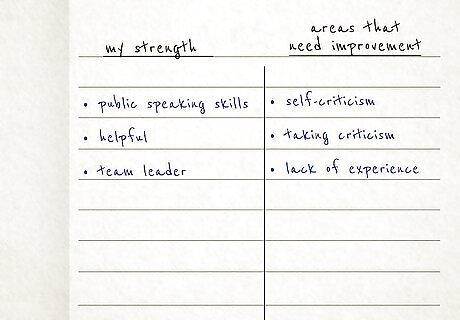 my strength
areas that
need improvement
• public speaking skills
• helpful
• team leader
• self-criticism
• taking criticism
• lack of experience